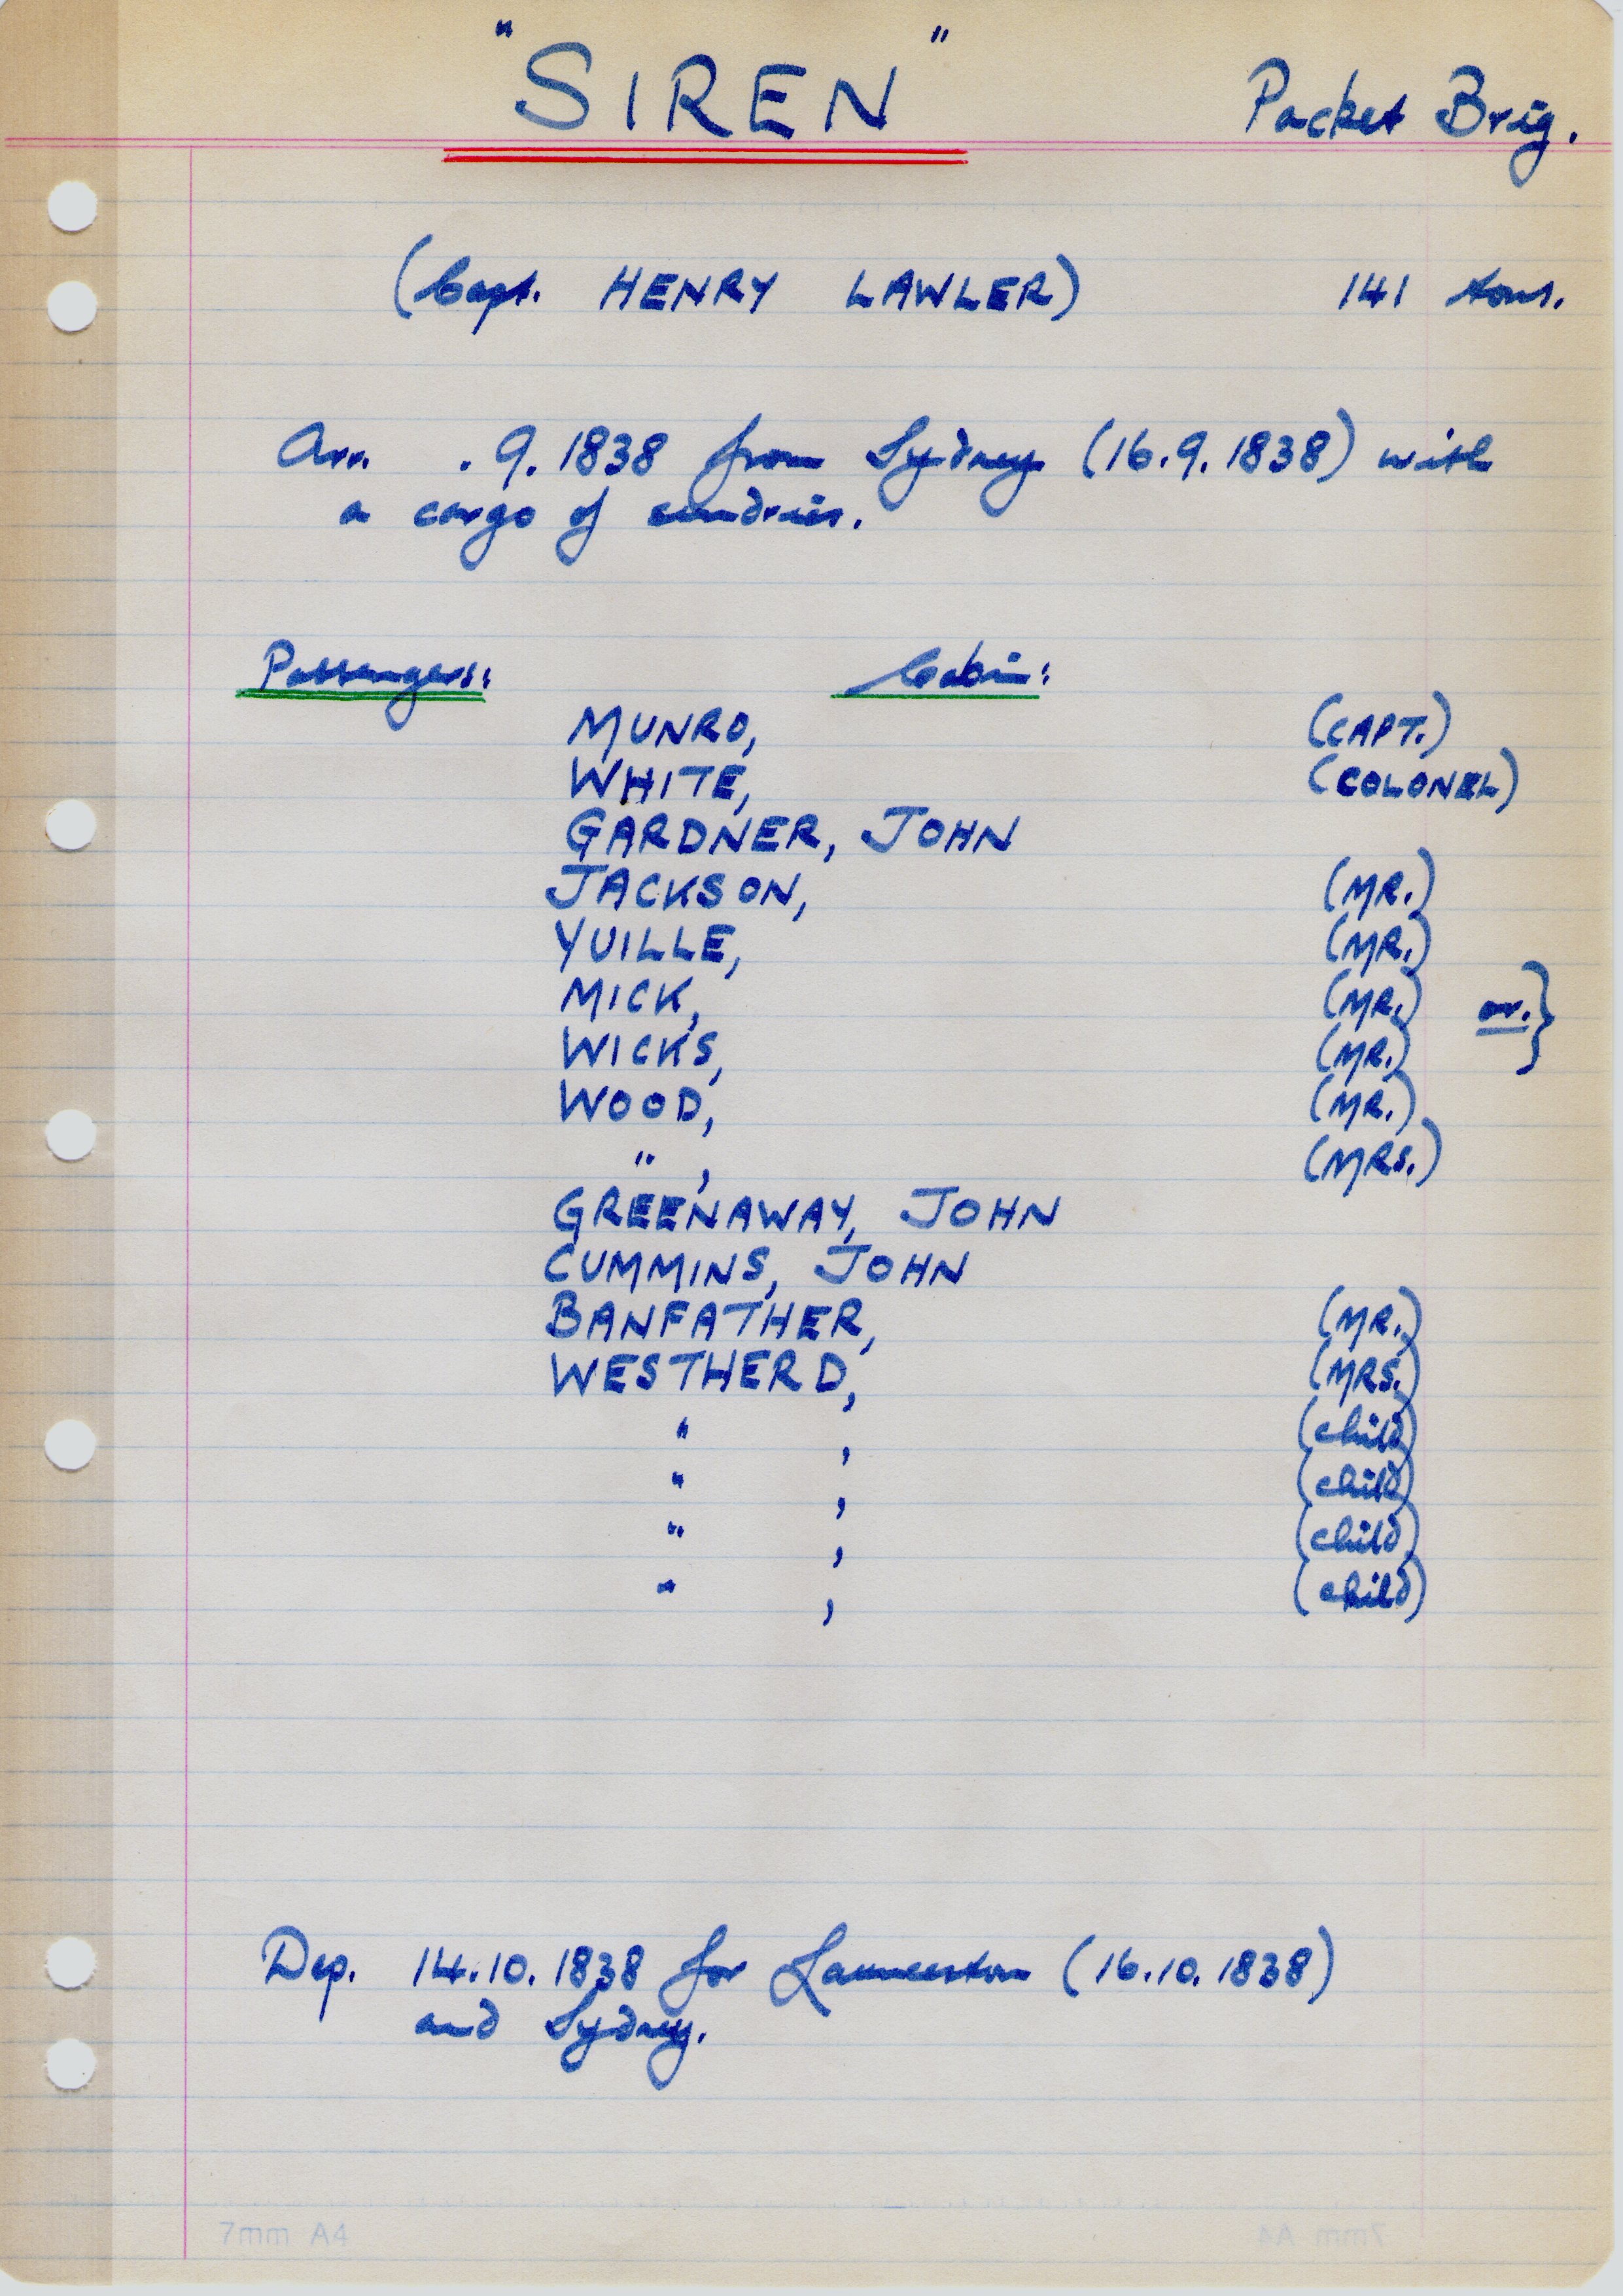 "SIREN" Packet Brig.
(Capt. HENRY LAWLER) 141 tons.
Arr. .9.1838 from Sydney (16.9.1838) with
a cargo of sundries.
Passengers: Cabin:
MUNRO, (CAPT.)
WHITE, (COLONEL)
GARDNER, JOHN
JACKSON, (MR.)
YUILLE, (MR.)
MICK, (MR.) or. }
WICKS, (MR.)
WOOD, (MR.)
" , (MRS.)
GREENAWAY, JOHN
CUMMINS, JOHN
BANFATHER, (MR.)
WESTHERD, (MRS.)
" , (child)
" , (child)
" , (child)
" , (child)
Dep. 14.10.1838 for Launceston (16.10.1838)
and Sydney.
7mm A4